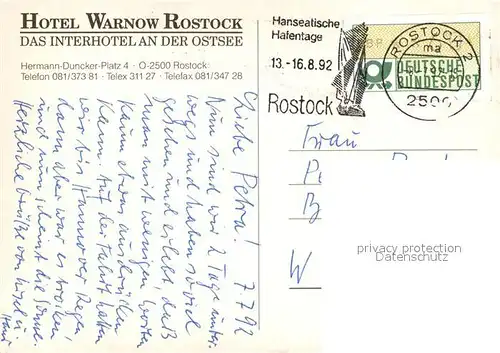 HOTEL WARNOW ROSTOCK
DAS INTERHOTEL AN DER OSTSEE
Hermann-Duncker-Platz 4 · O-2500 Rostock
Telefon 081/373 81 · Telex 311 27 · Telefax 081/347 28
Hanseatische
Hafentage
13.-16.8.92
Rostock
ROSTOCK 2
ma
2500
DEUTSCHE
BUNDESPOST
7.7.92
Liebe Petra!
Nun sind wir 2 Tage unter-
wegs und haben soviel
gesehen und erlebt, daß
man mit wenigen Worten
kaum etwas ausdrücken
kann. Auf der Fahrt hatten
wir bis Hannover Regen,
dann aber war es trocken
und nun scheint die Sonne.
Herzliche Grüße von
Frau
P
B
W
privacy protection
Datenschutz